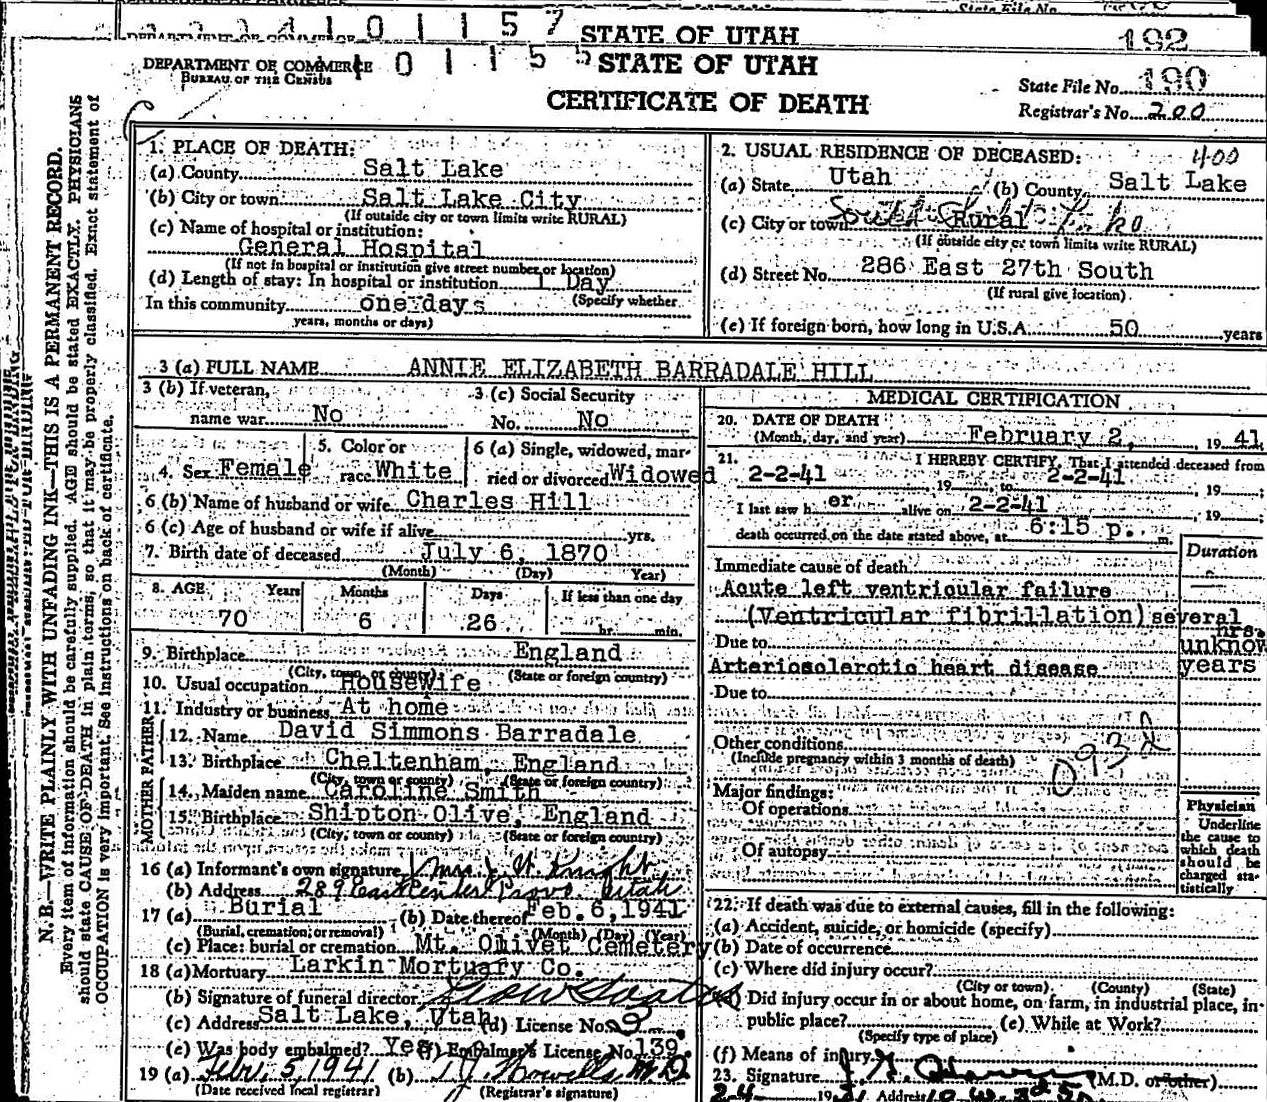 State File No.
1 0 1 1 5 7 STATE OF UTAH 192
DEPARTMENT OF COMMERCE 1 0 1 1 5 5 STATE OF UTAH
BUREAU OF THE CENSUS
CERTIFICATE OF DEATH
State File No. 190
Registrar's No. 200
N. B.—WRITE PLAINLY WITH UNFADING INK—THIS IS A PERMANENT RECORD.
Every item of information should be carefully supplied. AGE should be stated EXACTLY. PHYSICIANS
should state CAUSE OF DEATH in plain terms, so that it may be properly classified. Exact statement of
OCCUPATION is very important. See instructions on back of certificate.
1. PLACE OF DEATH:
(a) County Salt Lake
(b) City or town Salt Lake City
(If outside city or town limits write RURAL)
(c) Name of hospital or institution:
General Hospital
(If not in hospital or institution give street number or location)
(d) Length of stay: In hospital or institution 1 Day
In this community one days (Specify whether
years, months or days)
2. USUAL RESIDENCE OF DECEASED: 400
(a) State Utah (b) County Salt Lake
(c) City or town South Rural
(If outside city or town limits write RURAL)
(d) Street No. 286 East 27th South
(If rural give location)
(e) If foreign born, how long in U.S.A. 50 years
3 (a) FULL NAME ANNIE ELIZABETH BARRADALE HILL
3 (b) If veteran, name war No
3 (c) Social Security No. No
4. Sex Female
5. Color or race White
6 (a) Single, widowed, married or divorced Widowed
6 (b) Name of husband or wife Charles Hill
6 (c) Age of husband or wife if alive yrs.
7. Birth date of deceased July 6, 1870
(Month) (Day) Year)
8. AGE Years Months Days If less than one day
70 6 26 hr. min.
9. Birthplace England
(City, town, or county) (State or foreign country)
10. Usual occupation Housewife
11. Industry or business At home
FATHER
12. Name David Simmons Barradale
13. Birthplace Cheltenham, England
(City, town or county) (State or foreign country)
MOTHER
14. Maiden name Caroline Smith
15. Birthplace Shipton Olive, England
(City, town or county) (State or foreign country)
16 (a) Informant's own signature Mrs. J. W. Knight
(b) Address 289 East Center Provo Utah
17 (a) Burial (b) Date thereof Feb. 6, 1941
(Burial, cremation, or removal) (Month) (Day) (Year)
(c) Place: burial or cremation Mt. Olivet Cemetery
18 (a) Mortuary Larkin Mortuary Co.
(b) Signature of funeral director
(c) Address Salt Lake, Utah (d) License No.
(e) Was body embalmed? Yes (f) Embalmer's License No. 139.
19 (a) Febr. 5, 1941 (b) M.D.
(Date received local registrar) (Registrar's signature)
MEDICAL CERTIFICATION
20. DATE OF DEATH
(Month, day, and year) February 2, 19 41
21. I HEREBY CERTIFY, That I attended deceased from
2-2-41 19 to 2-2-41, 19 ;
I last saw h er alive on 2-2-41, 19 ;
death occurred on the date stated above, at 6:15 p. m.
Duration
Immediate cause of death
Acute left ventricular failure
(Ventricular fibrillation) several hrs.
Due to unknow
Arteriosclerotic heart disease years
Due to
Other conditions
(Include pregnancy within 3 months of death)
093d
Major findings:
Of operations
Of autopsy
Physician
Underline
the cause to
which death
should be
charged sta-
tistically
22. If death was due to external causes, fill in the following:
(a) Accident, suicide, or homicide (specify)
(b) Date of occurrence
(c) Where did injury occur?
(City or town) (County) (State)
(d) Did injury occur in or about home, on farm, in industrial place, in
public place? (e) While at Work?
(Specify type of place)
(f) Means of injury
23. Signature (M.D. or other)
2-4- 19 Address